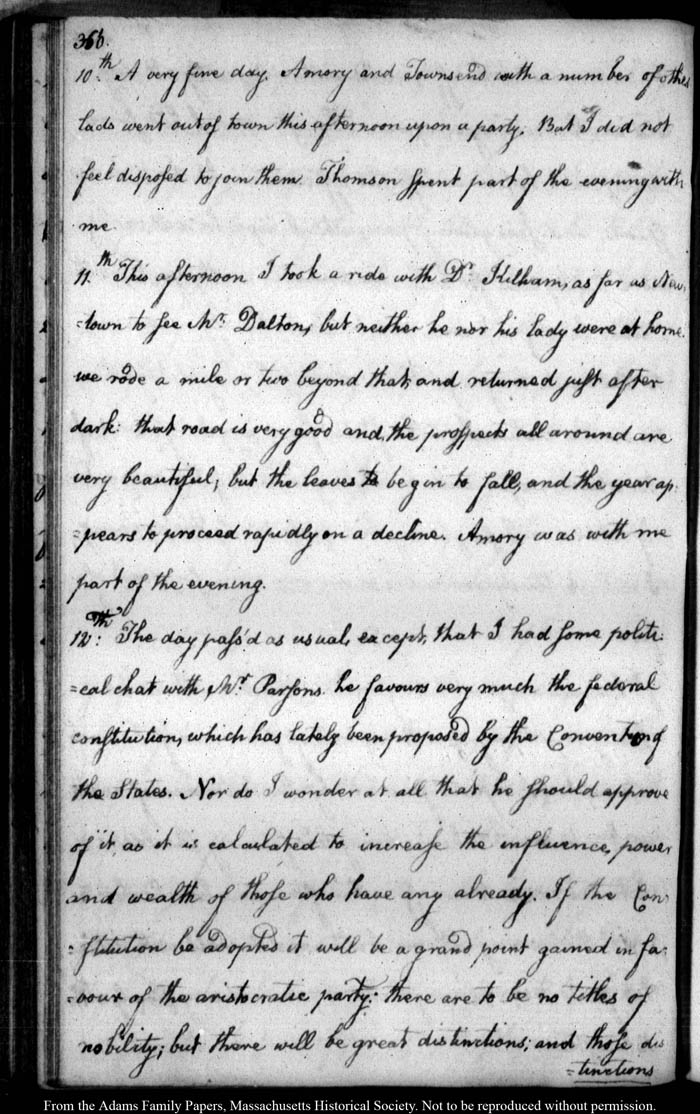 366.
10.th A very fine day. Amory and Townsend with a number of other
lads went out of town this afternoon upon a party. But I did not
feel disposed to join them. Thomson spent part of the evening with
me.
11.th This afternoon I took a ride with Dr. Kilham, as far as New-
=town to see Mr. Dalton, but neither he nor his lady were at home.
we rode a mile or two beyond that, and returned just after
dark: that road is very good and, the prospects all around are
very beautiful; but the leaves to begin to fall, and the year ap-
=pears to proceed rapidly on a decline. Amory was with me
part of the evening.
12th: The day pass'd as usual, except, that I had some politi-
=cal chat with Mr. Parsons. he favours very much the federal
constitution, which has lately been proposed by the Convention of
the States. Nor do I wonder at all that he should approve
of it, as it is calculated to increase the influence, power
and wealth of those who have any already. If the Con-
=stitution be adopted it will be a grand point gained in fa-
=vour of the aristocratic party: there are to be no titles of
nobility; but there will be great distinctions; and those dis
=tinctions
From the Adams Family Papers, Massachusetts Historical Society. Not to be reproduced without permission.